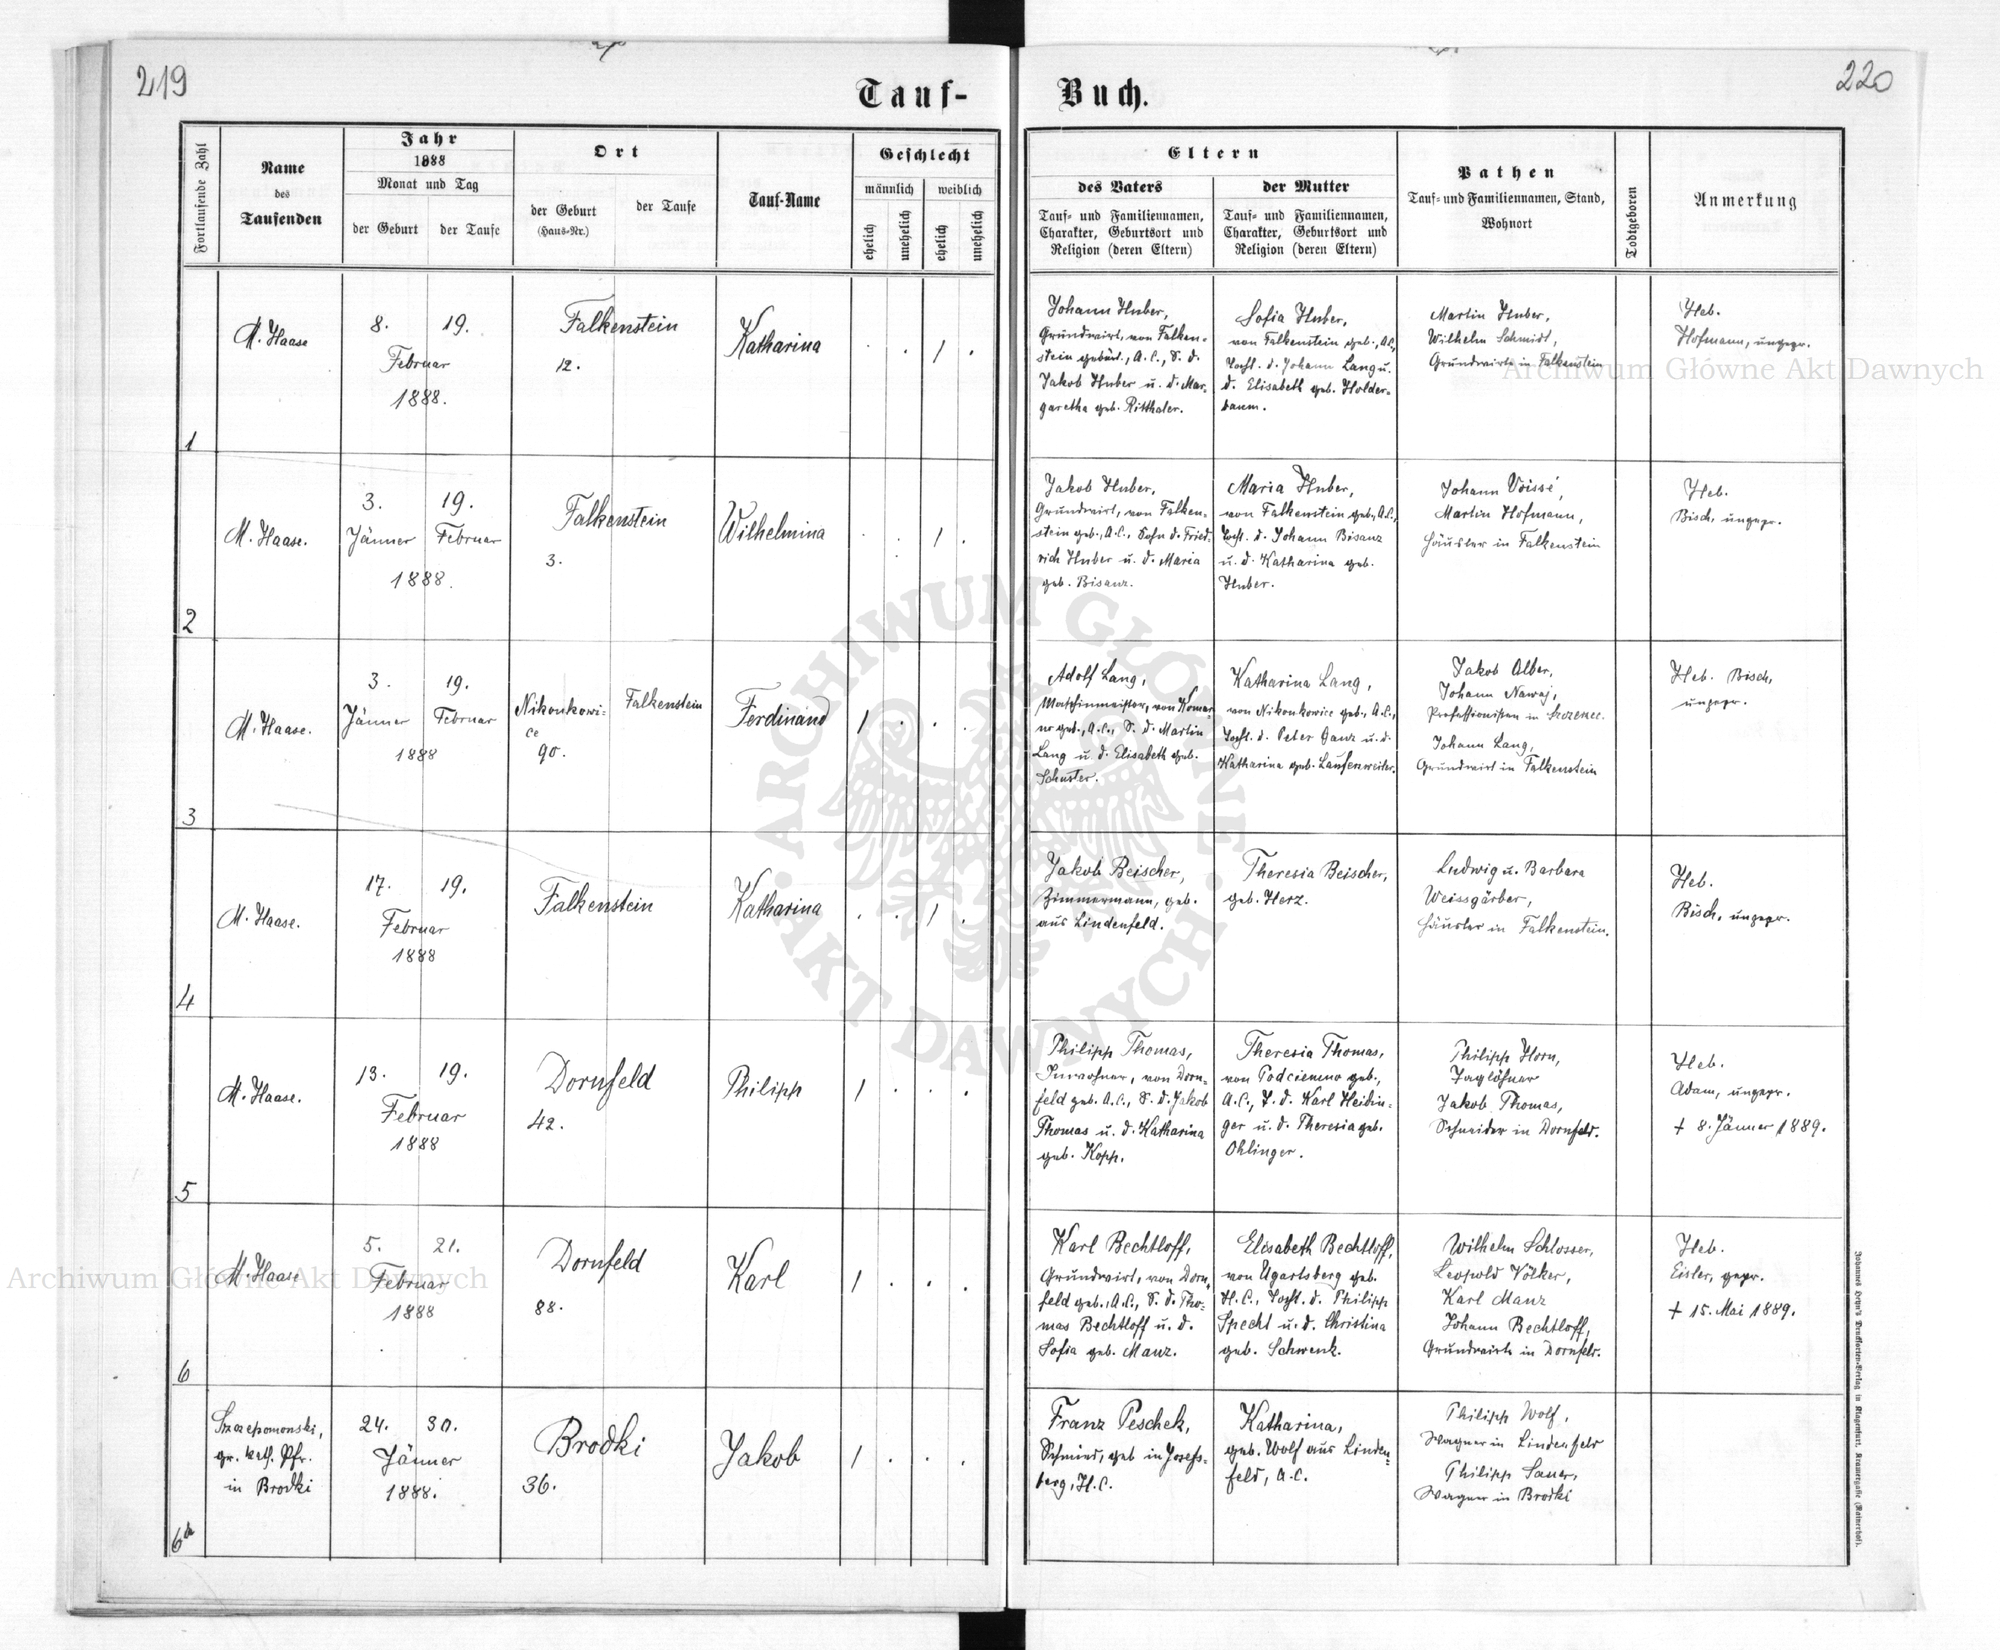 219
220
Tauf-
Buch.
Fortlaufende Zahl
Name
des
Taufenden
Jahr
1888
Monat und Tag
der Geburt
der Taufe
Ort
der Geburt
(Haus-Nr.)
der Taufe
Tauf-Name
Geschlecht
männlich
weiblich
ehelich
unehelich
ehelich
unehelich
Eltern
des Vaters
Tauf- und Familiennamen,
Charakter, Geburtsort und
Religion (deren Eltern)
der Mutter
Tauf- und Familiennamen,
Charakter, Geburtsort und
Religion (deren Eltern)
Pathen
Tauf- und Familiennamen, Stand,
Wohnort
Todtgeboren
Anmerkung
1
M. Haase
8.
19.
Februar
1888.
Falkenstein
12.
Katharina
. . 1 .
Johann Huber,
Grundwirt, von Falken-
stein gebürt., A.C., S. d.
Jakob Huber u. d. Mar-
garetha geb. Ritthaler.
Sofia Huber,
von Falkenstein geb., A.C.,
Tocht. d. Johann Lang u.
d. Elisabeth geb. Holder-
baum.
Martin Huber,
Wilhelm Schmidt,
Grundwirte in Falkenstein
Heb.
Hofmann, ungepr.
2
M. Haase.
3.
19.
Jänner
Februar
1888.
Falkenstein
3.
Wilhelmina
. . 1 .
Jakob Huber,
Grundwirt, von Falken-
stein geb., A.C., Sohn d. Fried-
rich Huber u. d. Maria
geb. Bisanz.
Maria Huber,
von Falkenstein geb., A.C.,
Tocht. d. Johann Bisanz
u. d. Katharina geb.
Huber.
Johann Voissé,
Martin Hofmann,
Häusler in Falkenstein
Heb.
Bisch, ungepr.
3
M. Haase.
3.
19.
Jänner
Februar
1888
Nikonkowi-
ce
90.
Falkenstein
Ferdinand
1 . . .
Adolf Lang,
Maschinmeister, von Komar-
no geb., A.C., S. d. Martin
Lang u. d. Elisabeth geb.
Schuster.
Katharina Lang,
von Nikonkowice geb., A.C.,
Tocht. d. Peter Ganz u. d.
Katharina geb. Laufersweiler.
Jakob Alber,
Johann Nawaj,
Professionisten in
Johann Lang,
Grundwirt in Falkenstein
Heb. Bisch,
ungepr.
4
M. Haase.
17.
19.
Februar
1888
Falkenstein
Katharina
. . 1 .
Jakob Beischer,
Zimmermann, geb.
aus Lindenfeld.
Theresia Beischer,
geb. Herz.
Ludwig u. Barbara
Weissgärber,
Häusler in Falkenstein.
Heb.
Bisch, ungepr.
5
M. Haase.
13.
19.
Februar
1888
Dornfeld
42.
Philipp
1 . . .
Philipp Thomas,
Inwohner, von Dorn-
feld geb. A.C., S. d. Jakob
Thomas u. d. Katharina
geb. Kopp.
Theresia Thomas,
von Podciemno geb.,
A.C., T. d. Karl Heidin-
ger u. d. Theresia geb.
Ohlinger.
Philipp Horn,
Taglöhner
Jakob Thomas,
Schneider in Dornfeld.
Heb.
Adam, ungepr.
† 8. Jänner 1889.
6
M. Haase
5.
21.
Februar
1888
Dornfeld
88.
Karl
1 . . .
Karl Bechtloff,
Grundwirt, von Dorn-
feld geb., A.C., S. d. Tho-
mas Bechtloff u. d.
Sofia geb. Manz.
Elisabeth Bechtloff,
von Ugartsberg geb.
H.C., Tocht. d. Philipp
Specht u. d. Christina
geb. Schwenk.
Wilhelm Schlosser,
Leopold Völker,
Karl Manz
Johann Bechtloff,
Grundwirte in Dornfeld.
Heb.
Eisler, gepr.
† 15. Mai 1889.
6a
Szczepomonski,
gr. kath. Pfr.
in Brodki
24.
30.
Jänner
1888.
Brodki
36.
Jakob
1 . . .
Franz Peschek,
Schmied, geb in Josefs-
berg, H.C.
Katharina,
geb. Wolf aus Linden-
feld, A.C.
Philipp Wolf,
Wagner in Lindenfeld
Philipp Sauer,
Wagner in Brodki
Johannes Heyn's Drucksorten-Verlag in Klagenfurt, Kramergasse (Rainerhof).
Archiwum Główne Akt Dawnych
Archiwum Główne Akt Dawnych
ARCHIWUM GŁÓWNE
AKT DAWNYCH